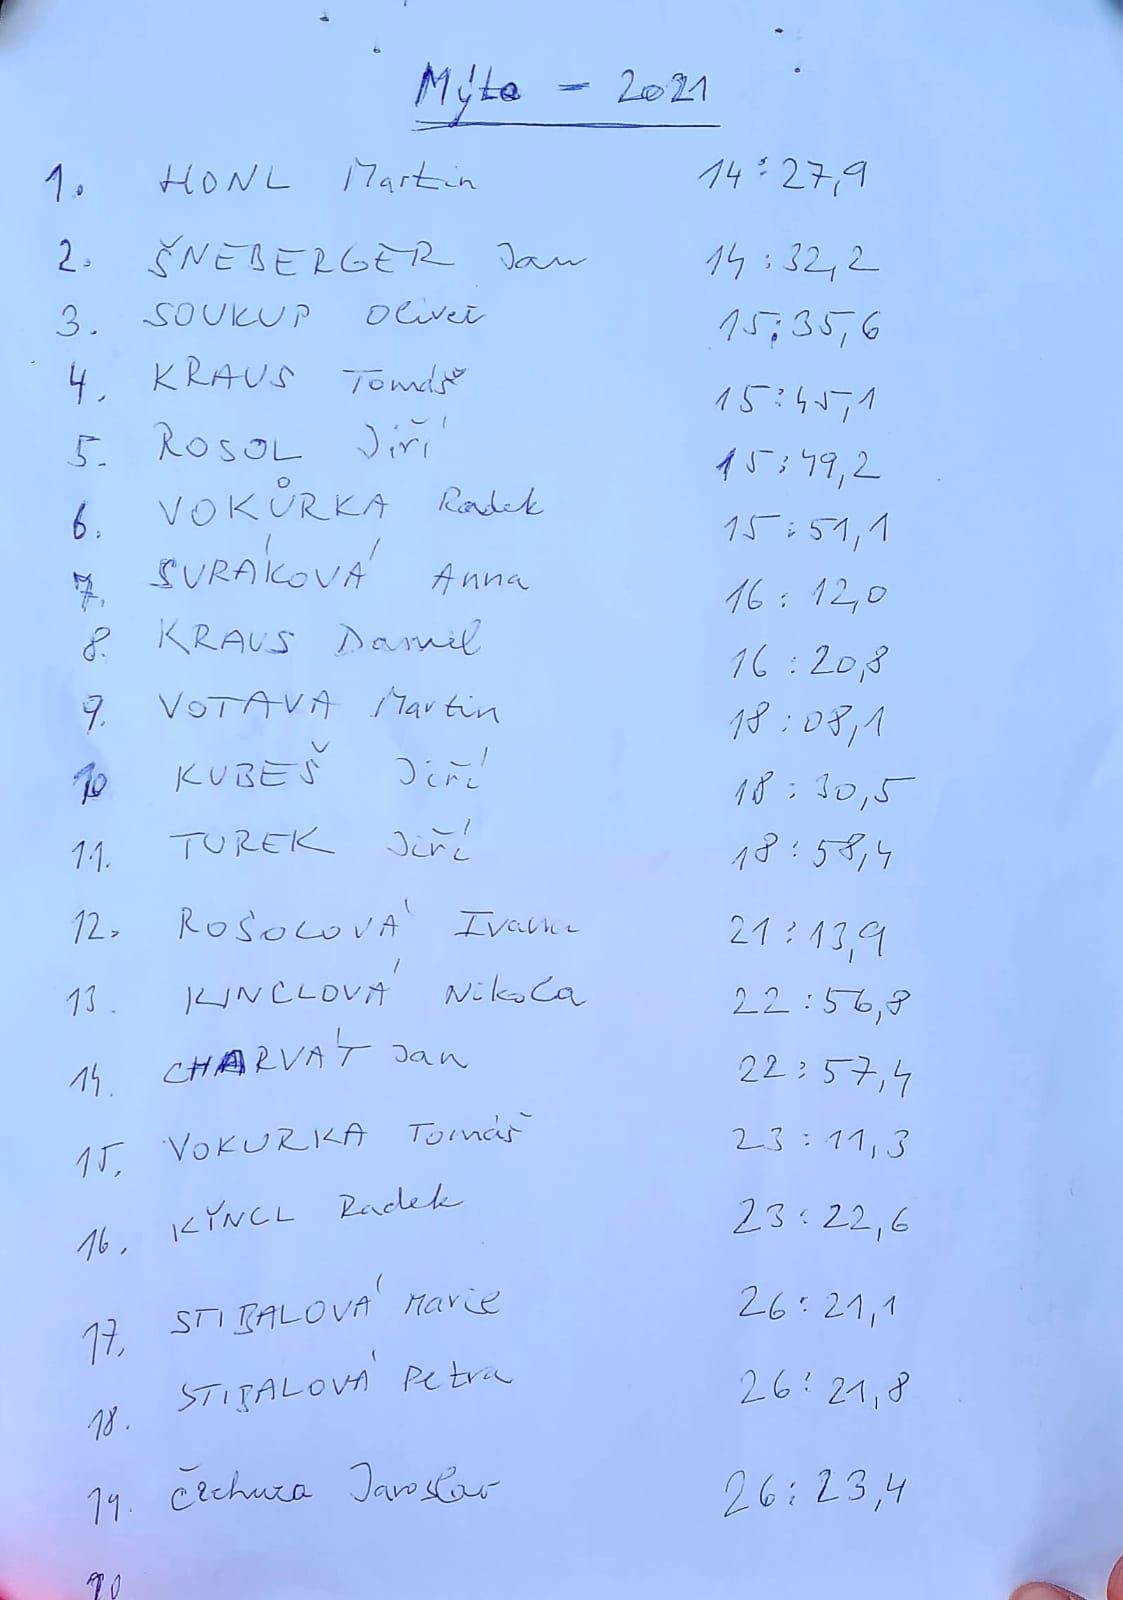 Mýto - 2021
1. HONL Martin 14:27,9
2. ŠNEBERGER Jan 14:32,2
3. SOUKUP Oliver 15:35,6
4. KRAUS Tomáš 15:45,1
5. ROSOL Jiří 15:49,2
6. VOKŮRKA Radek 15:51,1
7. SURÁKOVÁ Anna 16:12,0
8. KRAUS Daniel 16:20,8
9. VOTAVA Martin 18:08,1
10 KUBEŠ Jiří 18:30,5
11. TUREK Jiří 18:58,4
12. ROSOLOVÁ Ivana 21:13,9
13. KINCLOVÁ Nikola 22:56,8
14. CHARVÁT Jan 22:57,4
15. VOKURKA Tomáš 23:11,3
16. Radek 23:22,6
17. STIBALOVÁ Marie 26:21,1
18. STIBALOVÁ Petra 26:21,8
19. Čechura Jaroslav 26:23,4
20